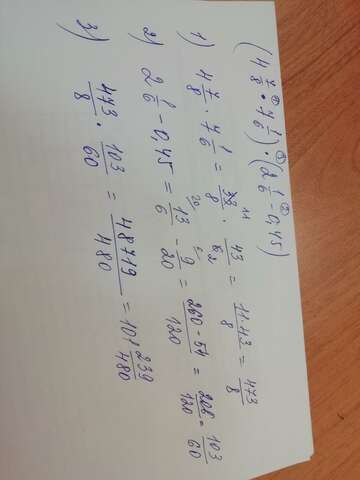 (4 7/8 · 7 1/6) · (2 1/6 - 0,45)
1) 4 7/8 · 7 1/6 = 33/8 · 43/6 = 11·43/8 = 473/8
2) 2 1/6 - 0,45 = 13/6 - 9/20 = 260-54/120 = 206/120 = 103/60
3) 473/8 · 103/60 = 48719/480 = 101 239/480